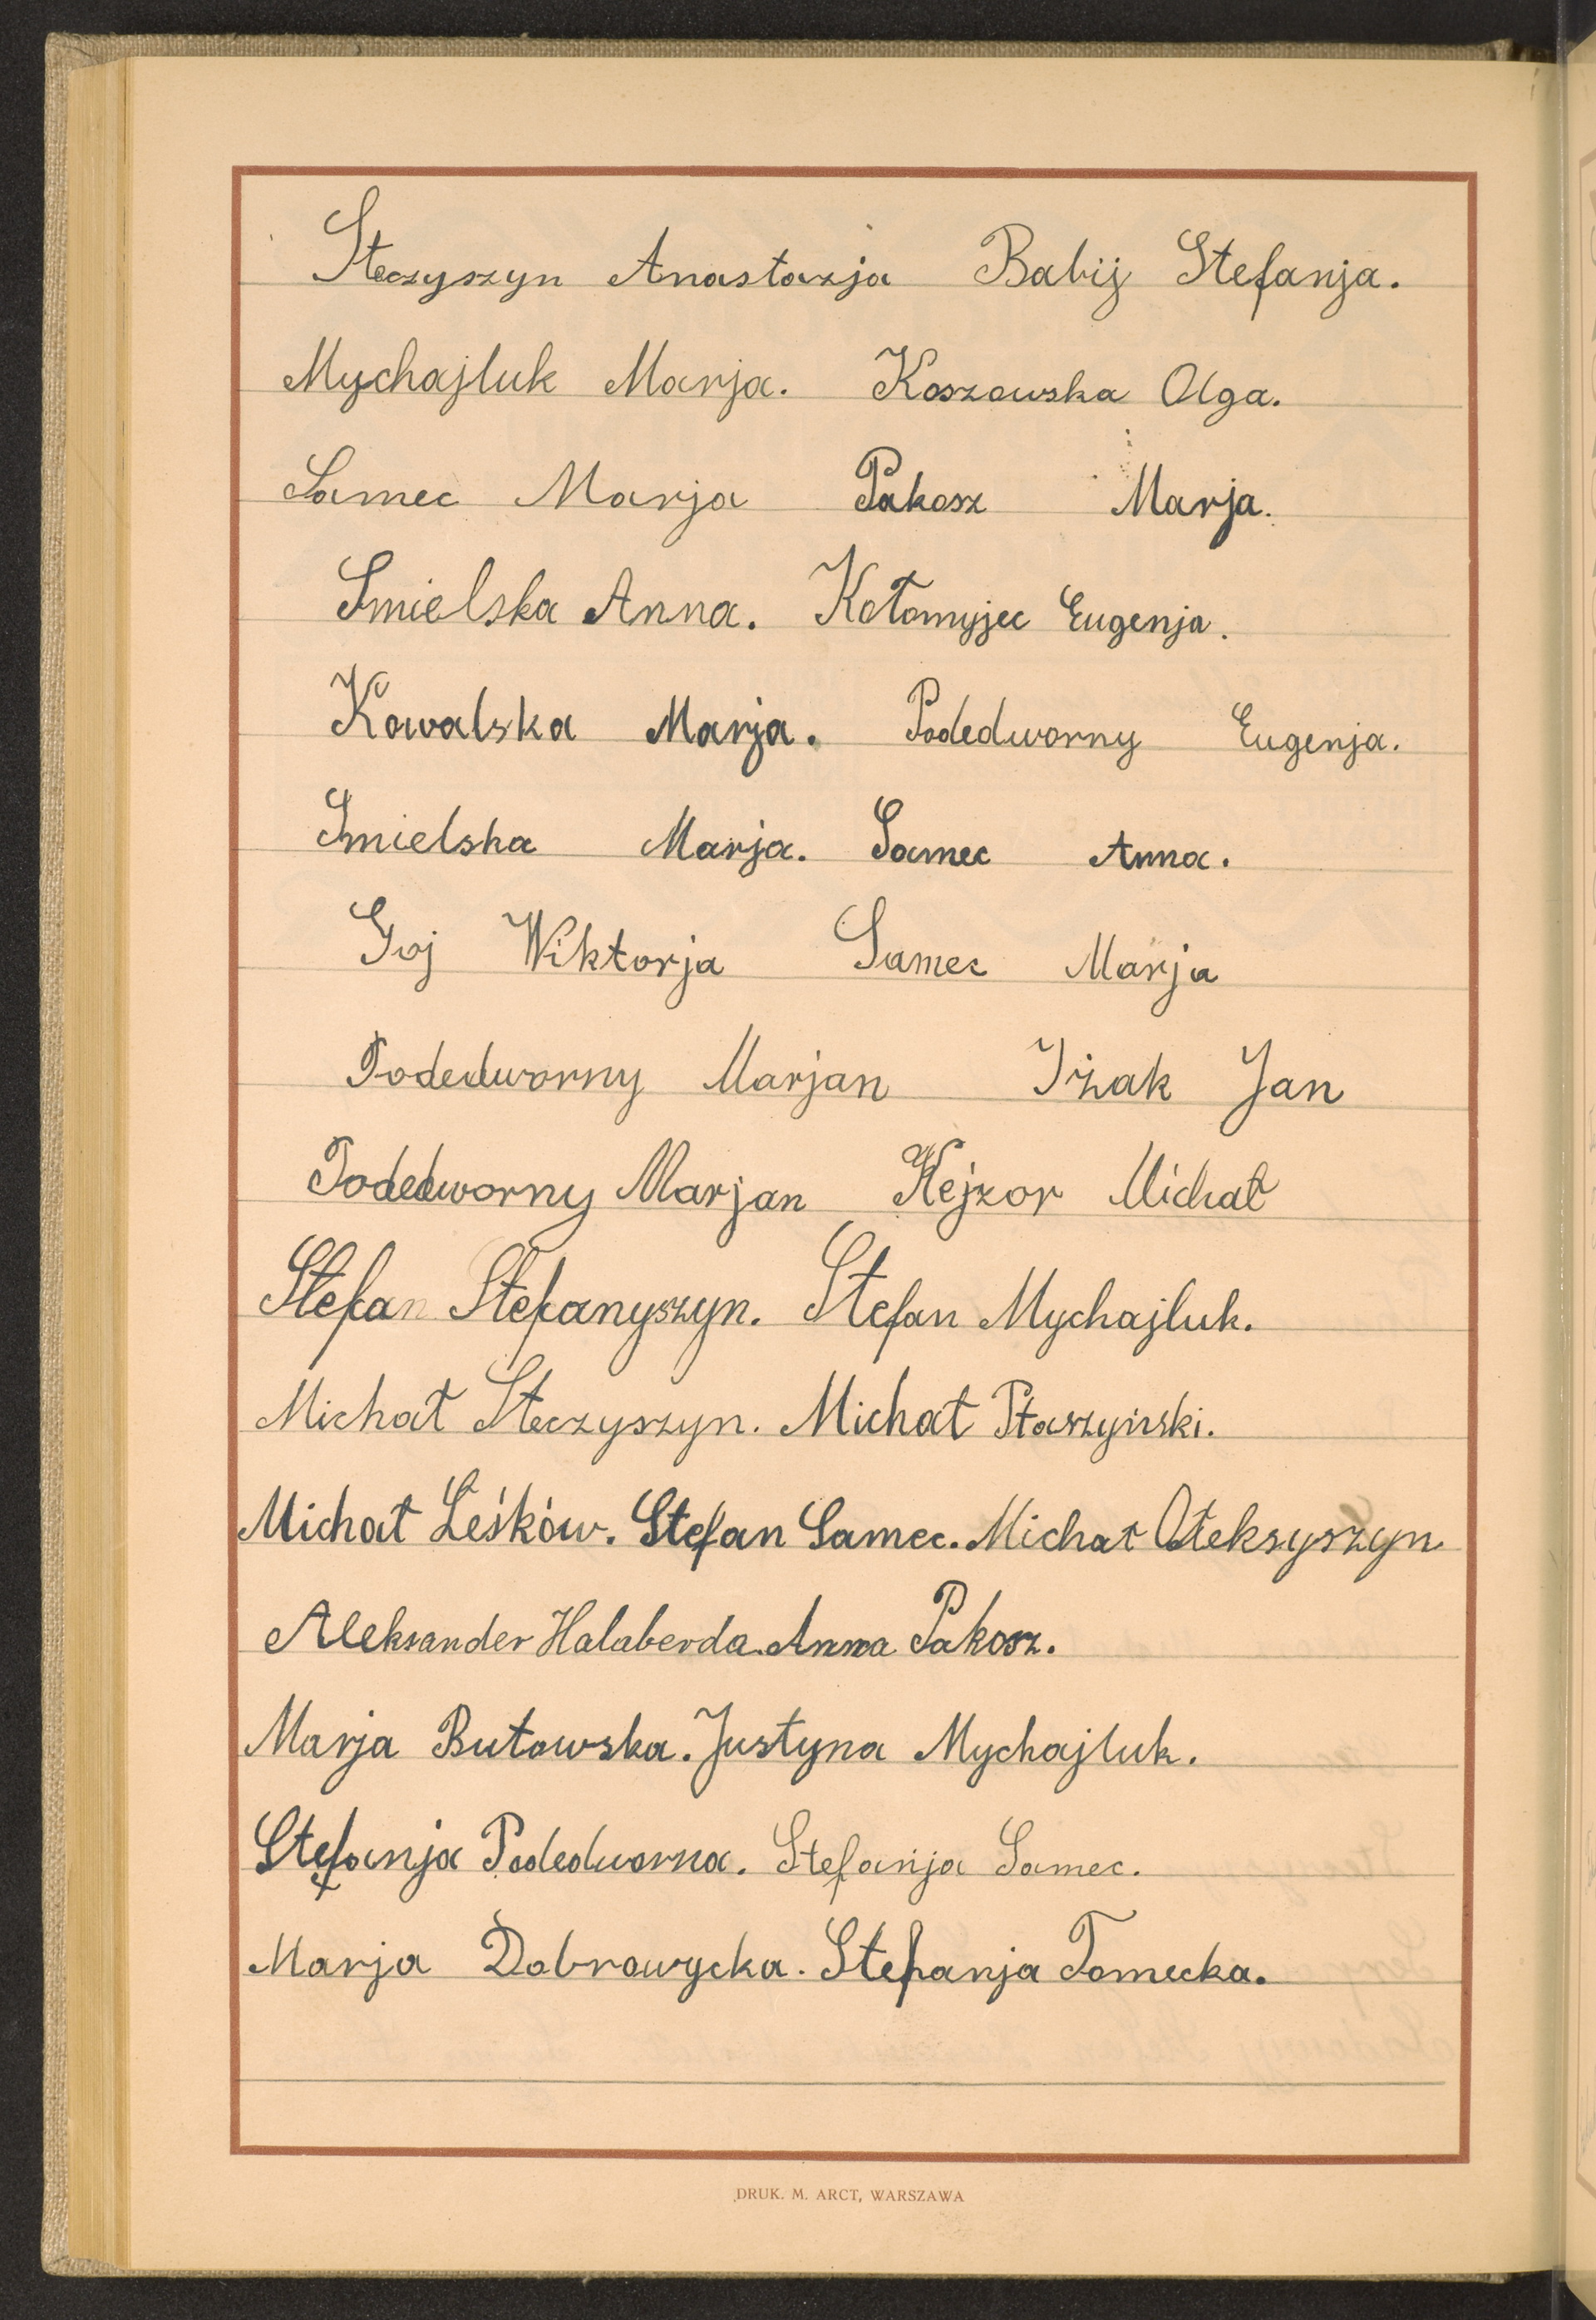 Steczyszyn Anastazja Babij Stefanja.
Mychajluk Marja. Koszowska Olga.
Samec Marja Pakosz Marja.
Smielska Anna. Kołomyjec Eugenja.
Kowalska Marja. Podedworny Eugenja.
Smielska Marja. Samec Anna.
Goj Wiktorja Samec Marja
Podedworny Marjan Iżak Jan
Podedworny Marjan Kejzor Michał
Stefan Stefanyszyn. Stefan Mychajluk.
Michał Steczyszyn. Michał Ptaszyński.
Michał Leśków. Stefan Samec. Michał Ołeksyszyn
Aleksander Halaberda. Anna Pakosz.
Marja Butowska. Justyna Mychajluk.
Stefanja Podedworna. Stefanja Samec.
Marja Dobrowycka. Stefanja Tomecka.
DRUK. M. ARCT, WARSZAWA